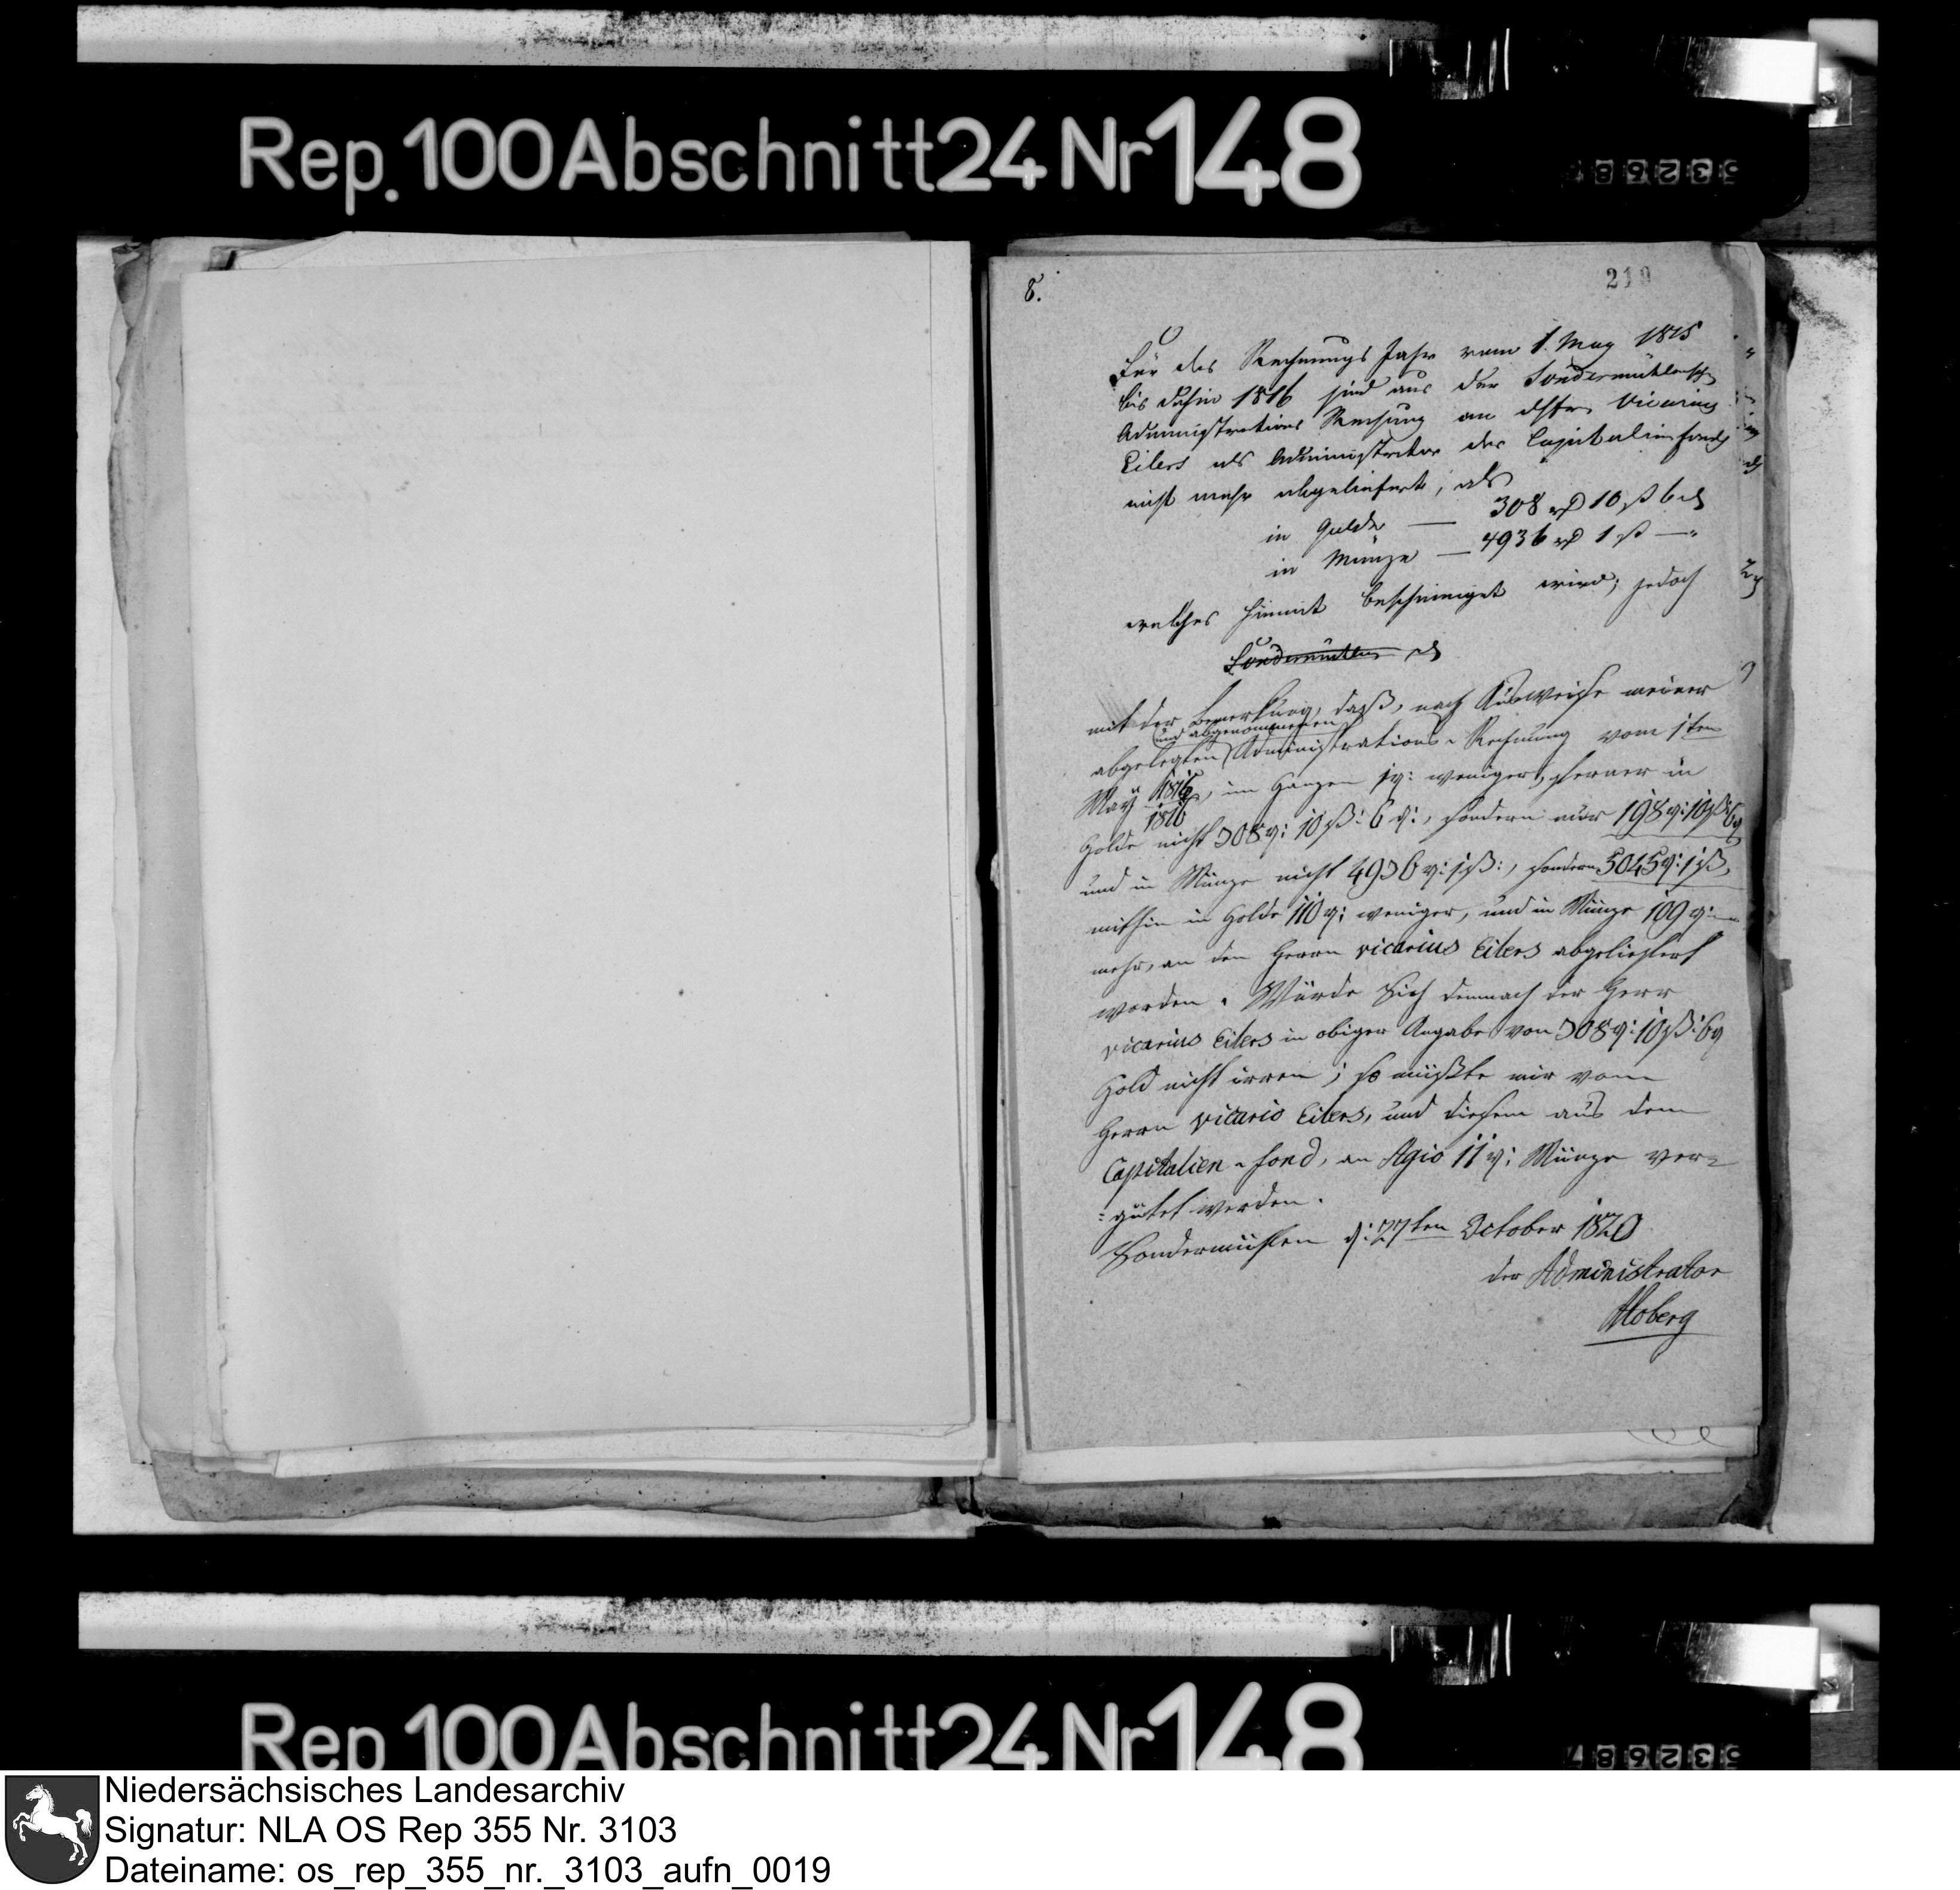 Rep. 100 Abschnitt 24 Nr 148
8.
210
Für das Rechnungs Jahr vom 1. May 1815
bis dahin 1816 sind aus der Sondermühlensch
Administrations Rechnung an Vicarius
Eilers als Administrator des Capitalienfonds
nicht mehr abgeliefert, als
in Golde — 308 rt 10 ß 6 d
in Münze — 4936 rt 1 ß — "
welches hiemit bescheiniget wird; jedoch
Sondermühlen d
mit der Bemerkung, daß, nach Ausweise meiner
und abgenommenen
abgelegten Administrations-Rechnung vom 1ten
May 1815/1816, im Ganzen 1 rt: weniger, ferner in
Golde nicht 308 rt: 10 ß: 6 d:, sondern nur 198 rt: 10 ß: 6 d
und in Münze nicht 4936 rt: 1 ß:, sondern 5045 rt: 1 ß,
mithin in Golde 110 rt: weniger, und in Münze 109 rt:
mehr, an den Herrn vicarius Eilers abgeliefert
worden. Würde sich demnach der Herr
vicarius Eilers in obiger Angabe von 308 rt: 10 ß: 6 d
Gold nicht irren; so müßte mir vom
Herrn vicario Eilers, und diesem aus dem
Capitalien-fond, an Agio 11 rt: Münze ver=
=gütet werden.
Sondermühlen d: 27ten October 1820
der Administrator
Moberg
Rep. 100 Abschnitt 24 Nr 148
Niedersächsisches Landesarchiv
Signatur: NLA OS Rep 355 Nr. 3103
Dateiname: os_rep_355_nr._3103_aufn_0019